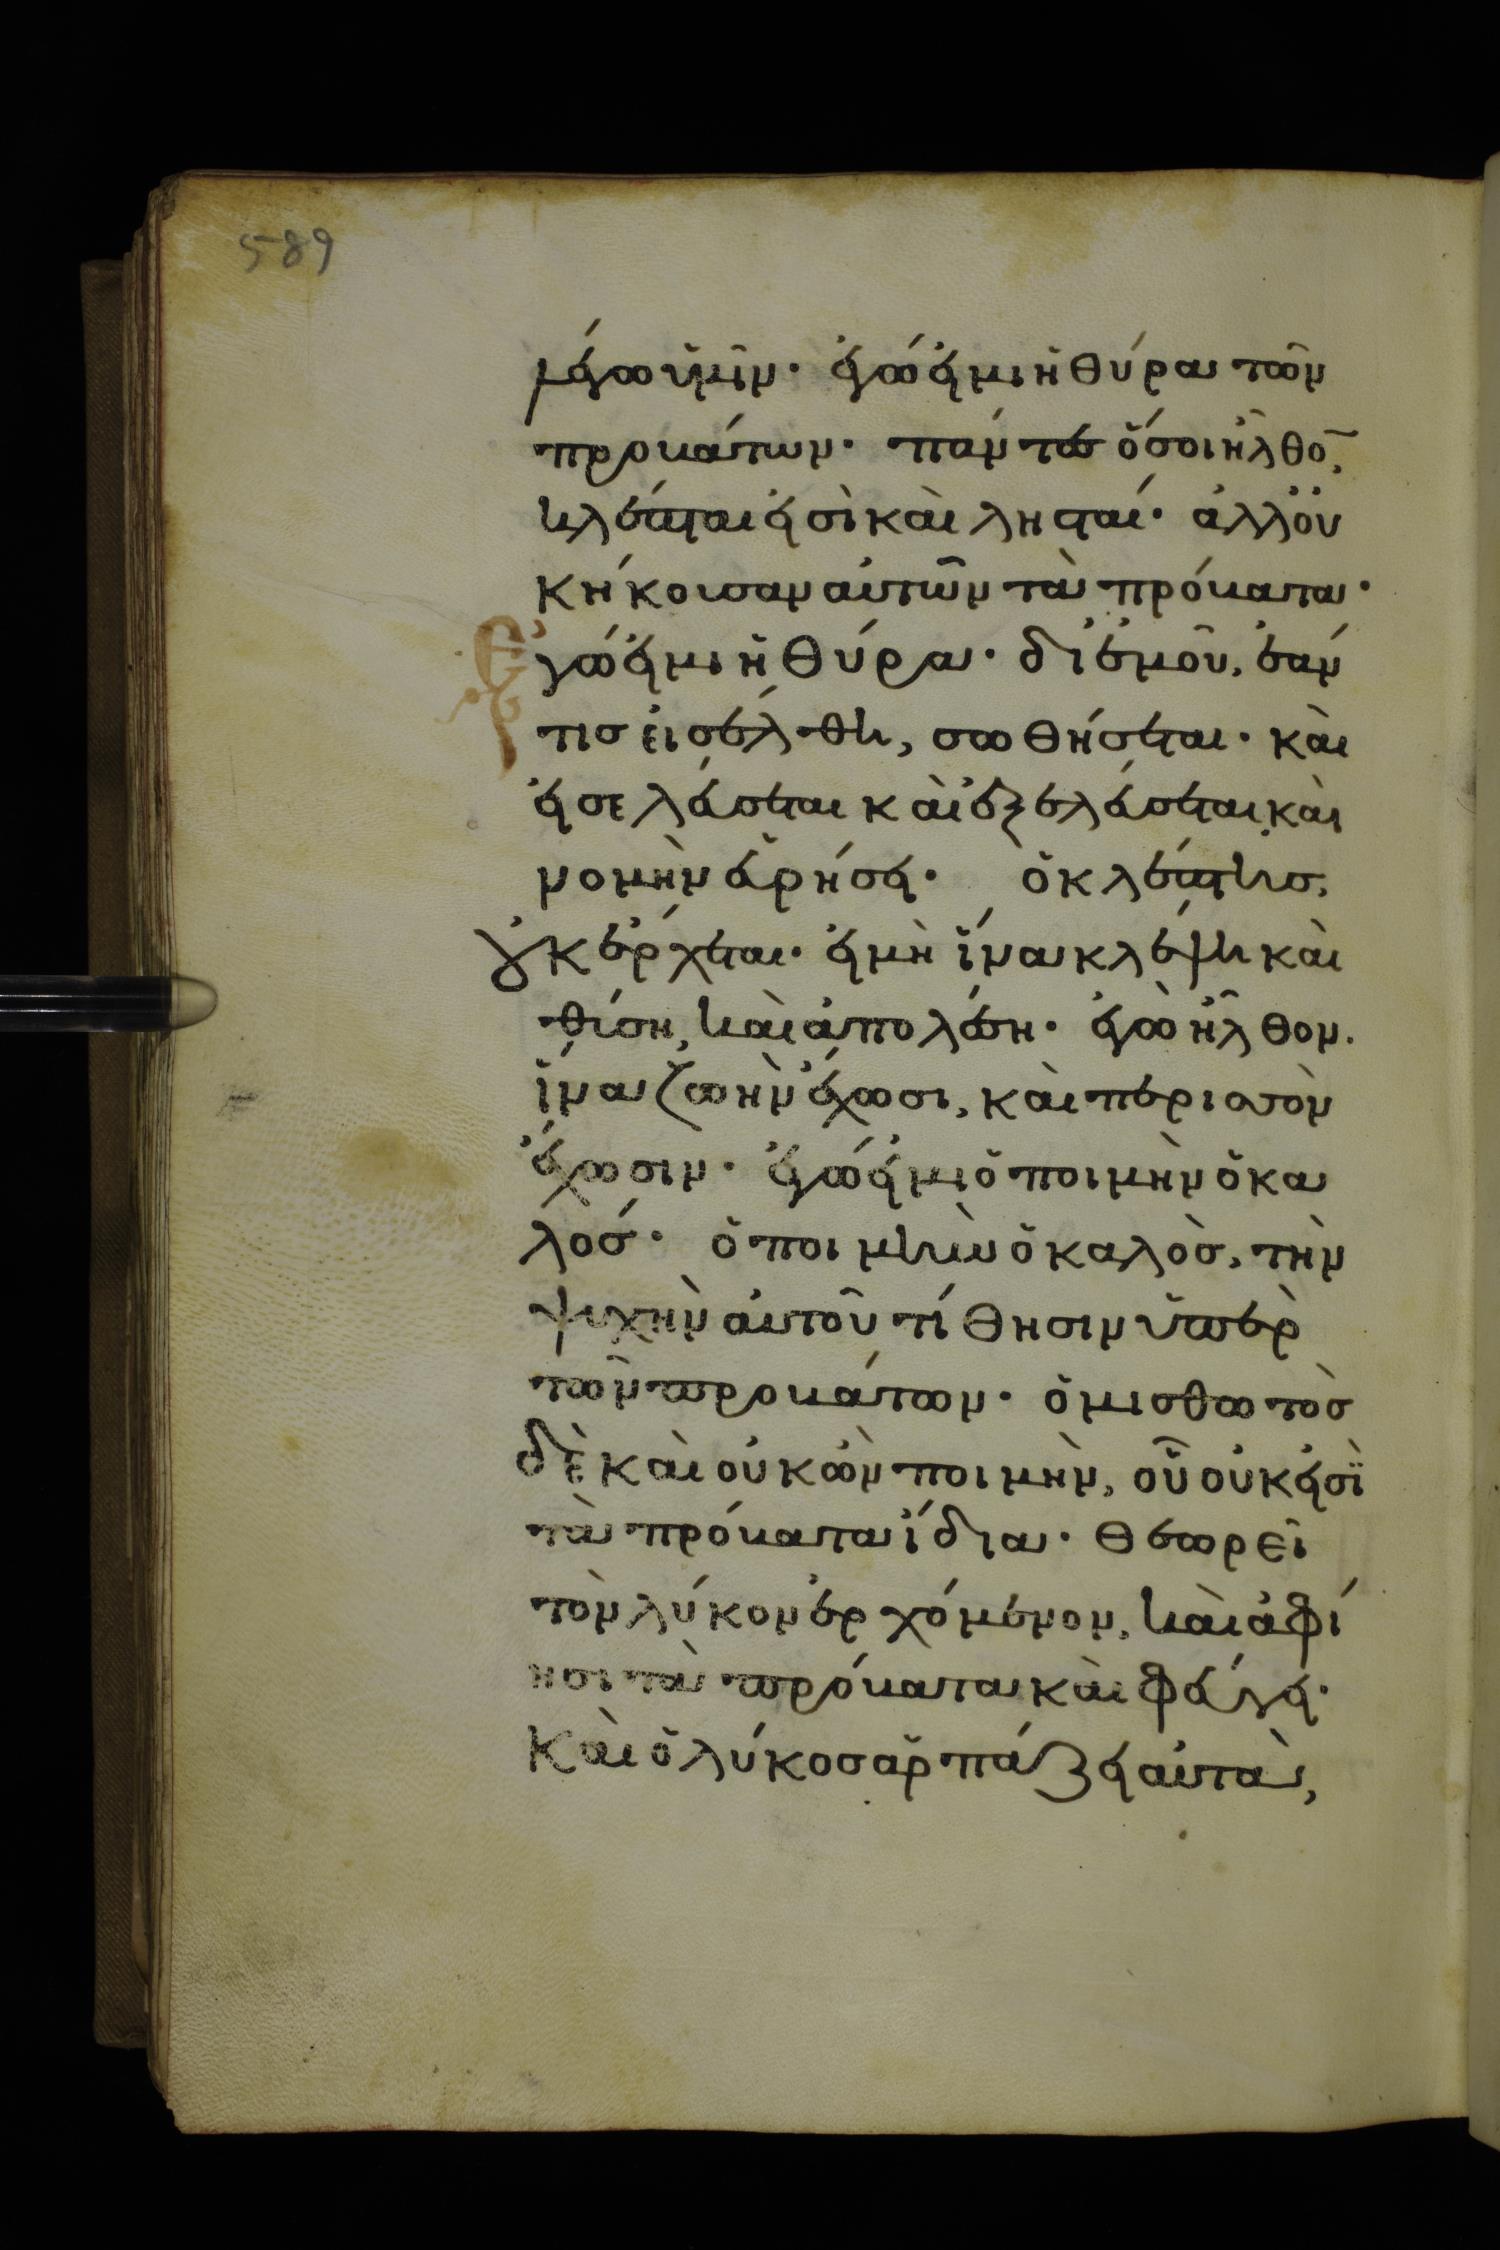 λέγω ὑμῖν· ἐγώ εἰμι ἡ θύρα τῶν
προβάτων· πάντες ὅσοι ἦλθο̅,
κλέπται εἰσὶ καὶ λησταί· ἀλλ' οὐ
κ ἤκουσαν αὐτῶν τὰ πρόβατα·
Ἐγώ εἰμι ἡ θύρα· δι' ἐμοῦ, ἐάν
τις εἰσέλθη, σωθήσεται· καὶ
εἰσελεύσεται καὶ ἐξελεύσεται, καὶ
νομὴν εὑρήσει· ὁ κλέπτης,
οὐκ ἔρχεται· εἰ μὴ ἵνα κλέψη καὶ
θύση, καὶ ἀπολέση· ἐγὼ ἦλθον.
ἵνα ζωὴν ἔχωσι, καὶ περισσὸν
ἔχωσιν· ἐγώ εἰμι ὁ ποιμὴν ὁ κα
λός· ὁ ποιμὴν ὁ καλὸς, τὴν
ψυχὴν αὐτοῦ τίθησιν ὑπὲρ
τῶν προβάτων· ὁ μισθωτὸς
δὲ καὶ οὐκ ὢν ποιμὴν, οὗ οὐκ εἰσὶ
τὰ πρόβατα ἴδια· θεωρεῖ
τὸν λύκον ἐρχόμενον, καὶ ἀφί
ησι τὰ πρόβατα καὶ φεύγει·
Καὶ ὁ λύκος ἁρπάζει αὐτὰ,
589